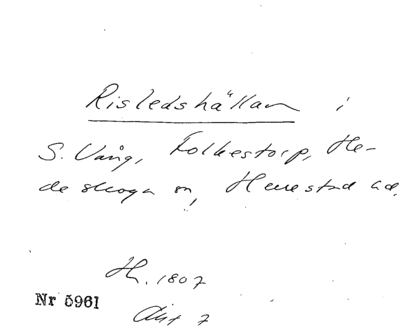 Risledshällan i
S. Vång, Folkestorp, He-
deskoga sn, Herrestad hd.
Hh. 1807
Nr 5961
Akt 7